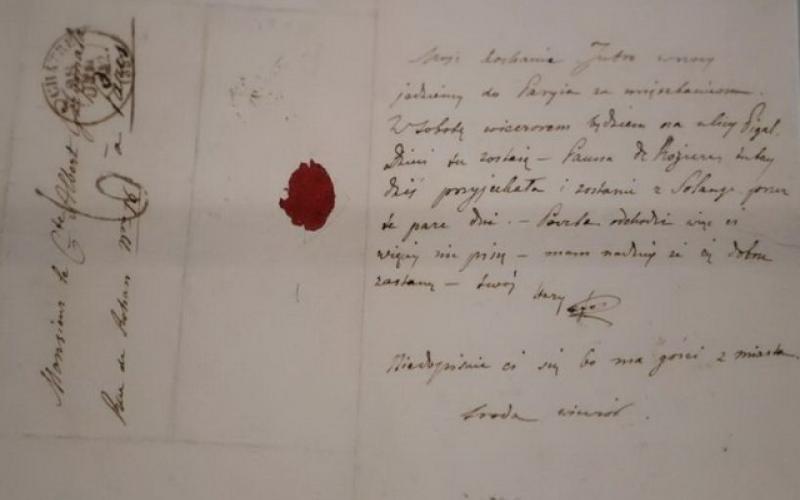 Moje kochanie Jutro w nocy
jedziemy do Paryża za mięszkaniem.
W Sobotę wieczorem będziem na ulicy Pigal.
Dzieci tu zostaję — Panna de Rozieres tutaj
dziś przyjechała i zostanie z Solange przez
te pare dni. — Poczta odchodzi więc ci
więcej nie piszę — mam nadzieję że cię dobrze
zastanę — twój
ci się bo ma gości z miasta.
Sroda wieczór.
Monsieur le Cte Albert
Rue de Rohan No
à